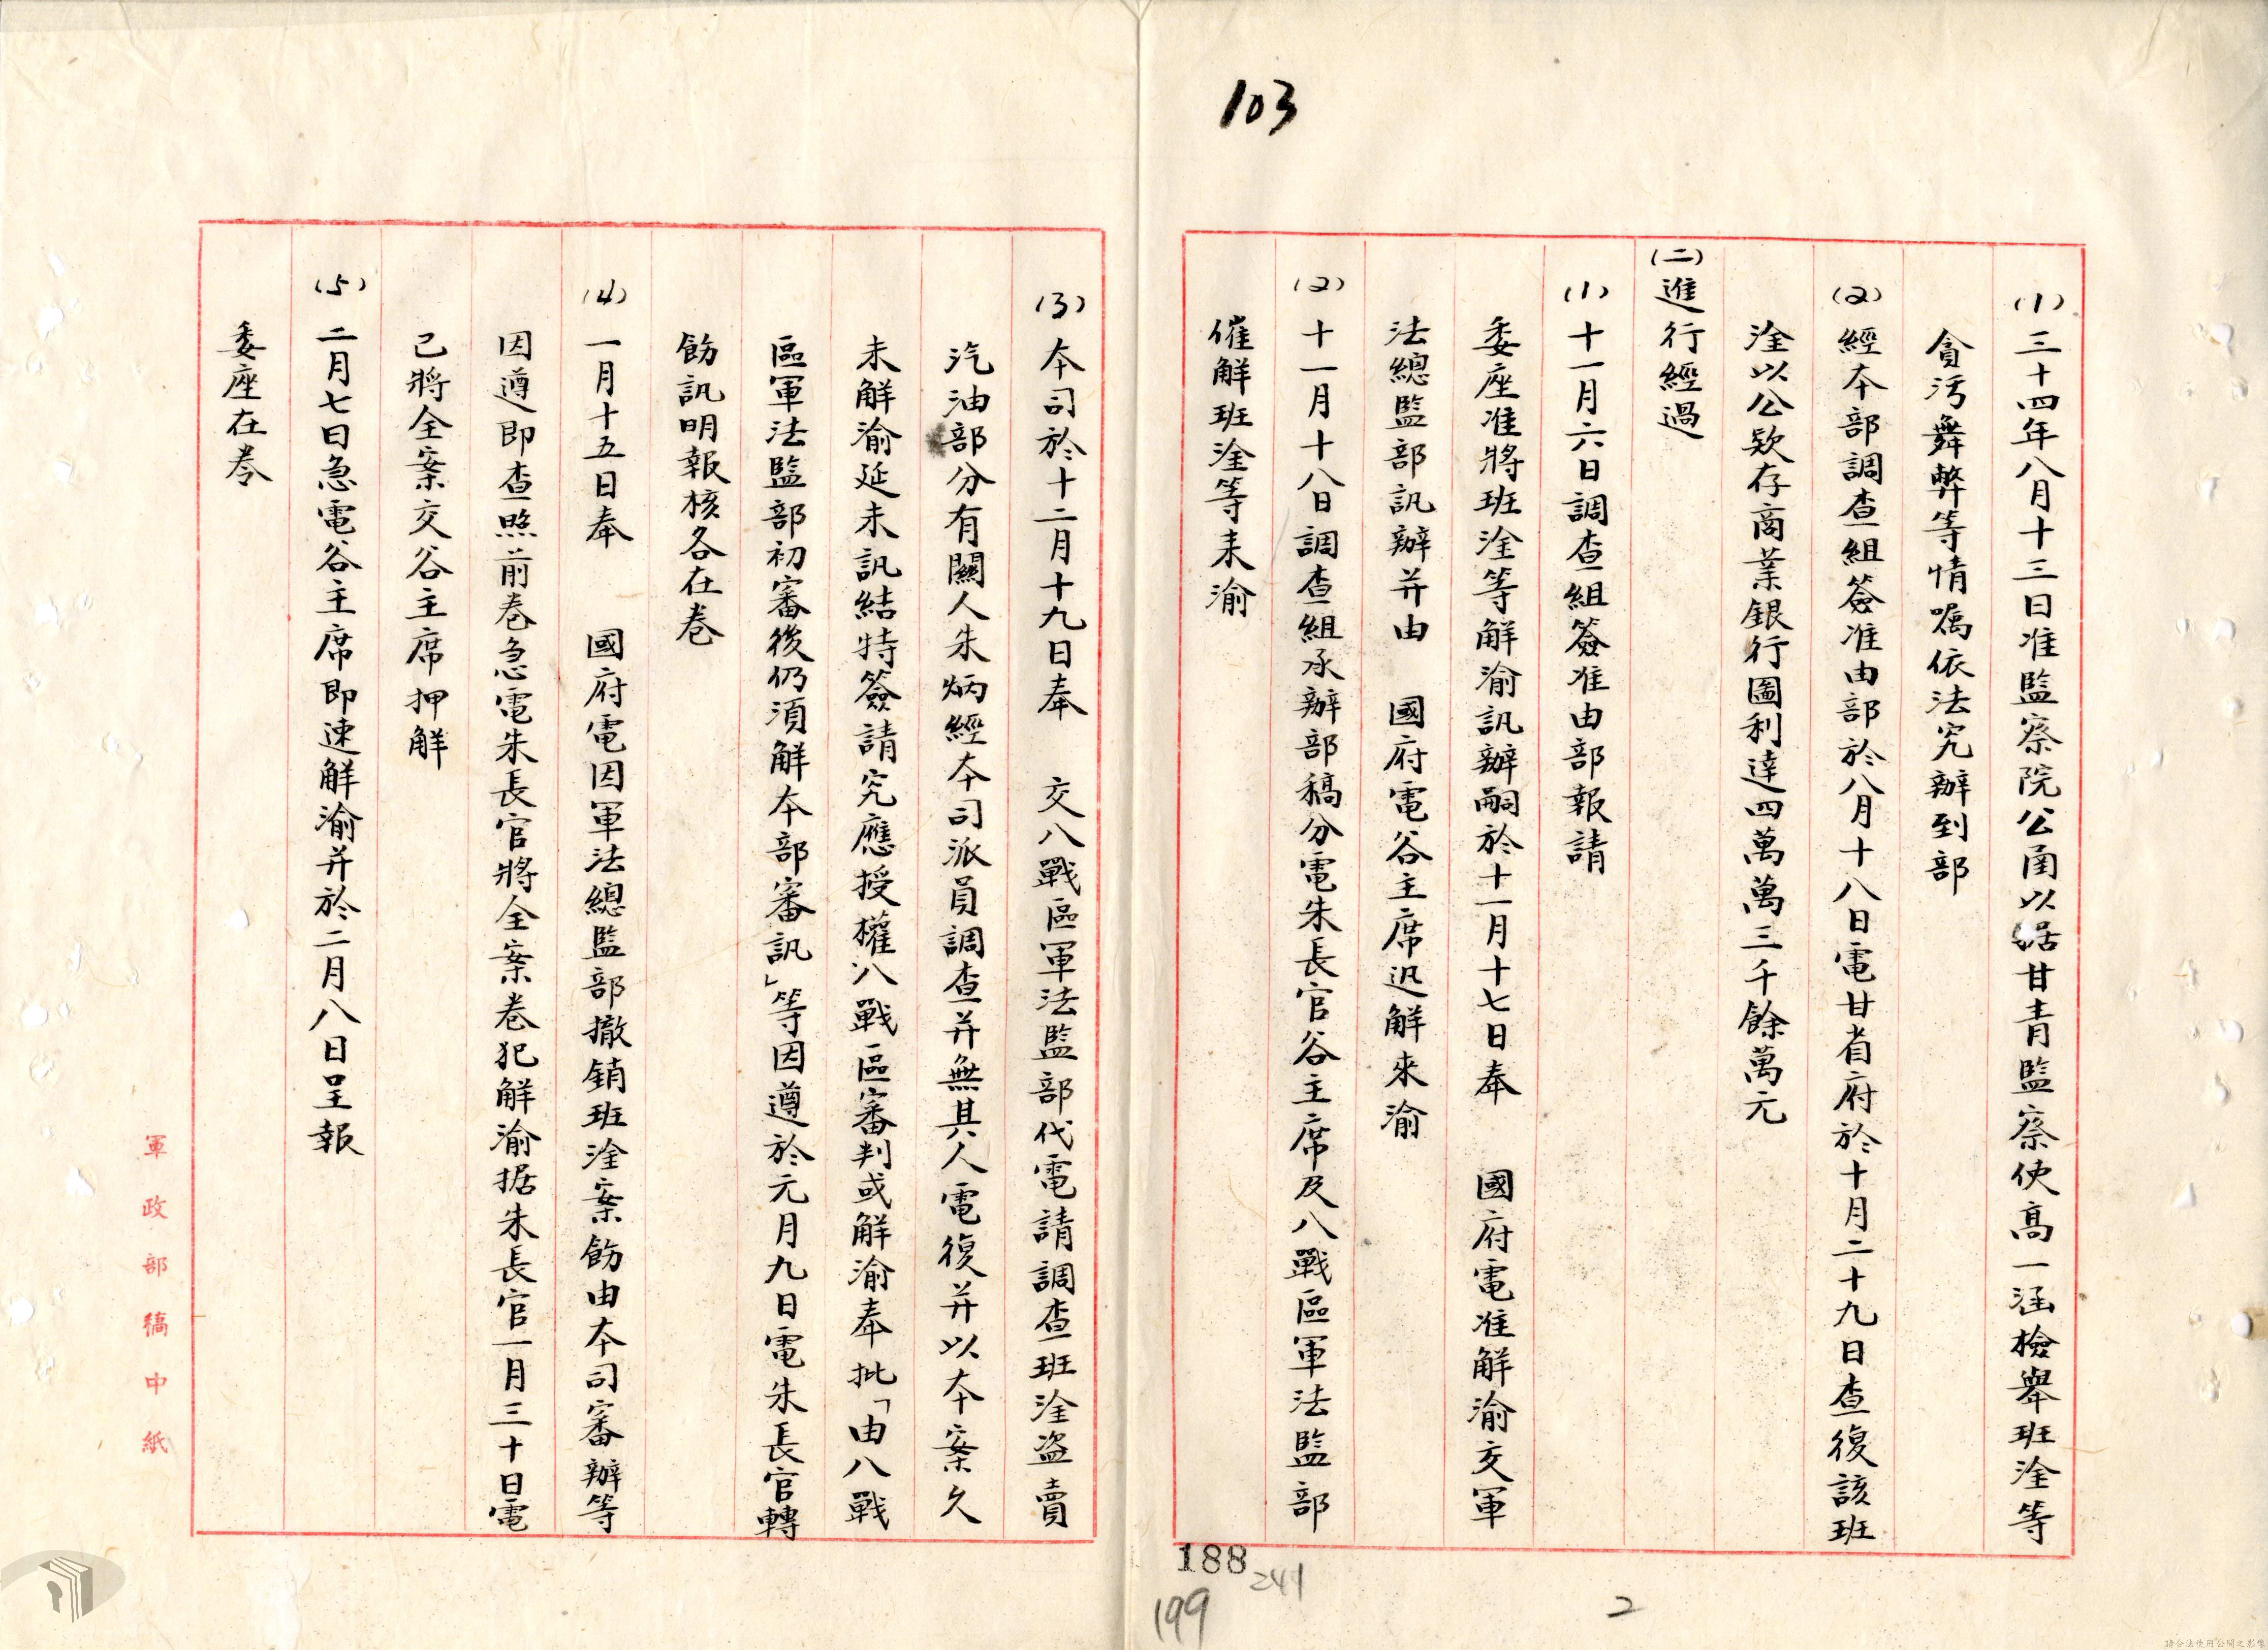 103
(1)三十四年八月十三日准監察院公函以据甘青監察使高一涵檢舉班淦等
貪污舞弊等情嘱依法究辦到部
(2)經本部調查組簽准由部於八月十八日電甘省府於十月二十九日查復該班
淦以公欵存商業銀行圖利達四萬萬三千餘萬元
(二)進行經過
(1)十一月六日調查組簽准由部報請
委座准將班淦等解渝訊辦嗣於十一月十七日奉 國府電准解渝交軍
法總監部訊辦并由 國府電谷主席迅解來渝
(2)十一月十八日調查組承辦部稿分電朱長官谷主席及八戰區軍法監部
催解班淦等来渝
(3)本司於十二月十九日奉 交八戰區軍法監部代電請調查班淦盜賣
汽油部分有關人朱炳經本司派員調查并無其人電復并以本案久
未解渝延未訊結特簽請究應授權八戰區審判或解渝奉批「由八戰
區軍法監部初審後仍須解本部審訊」等因遵於元月九日電朱長官轉
飭訊明報核各在卷
(4)一月十五日奉 國府電因軍法總監部撤銷班淦案飭由本司審辦等
因遵即查照前卷急電朱長官將全案卷犯解渝据朱長官一月三十日電
已將全案交谷主席押解
(5)二月七日急電谷主席即速解渝并於二月八日呈報
委座在卷
軍政部稿中紙
188
241
199
2
請合法使用公開之影像